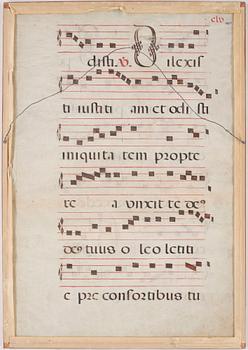 clv
disti. V. Dilexis
ti iustiti am et odi sti
iniquita tem propte
re a vnxit te de9
de9 tuus o leo letiti
e pre consortibus tu